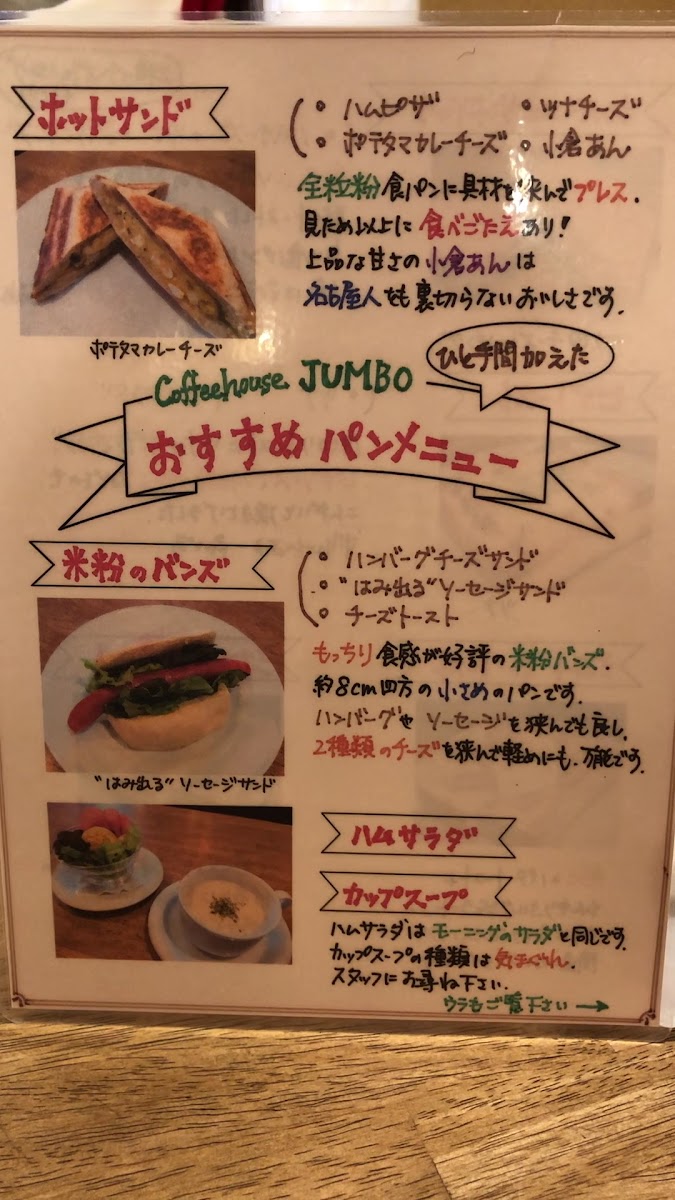 ホットサンド
・ハムピザ ・ツナチーズ
・ポテタマカレーチーズ ・小倉あん
全粒粉食パンに具材を挟んでプレス.
見ため以上に食べごたえあり!
上品な甘さの小倉あんは
名古屋人をも裏切らないおいしさです.
ポテタマカレーチーズ
ひと手間加えた
Coffeehouse JUMBO
おすすめ パンメニュー
米粉のバンズ
・ハンバーグチーズサンド
・"はみ出る"ソーセージサンド
・チーズトースト
もっちり食感が好評の米粉バンズ.
約8cm四方の小さめのパンです.
ハンバーグやソーセージを挟んでも良し.
2種類のチーズを挟んで軽めにも.万能です.
"はみ出る"ソーセージサンド
ハムサラダ
カップスープ
ハムサラダはモーニングのサラダと同じです.
カップスープの種類は気まぐれ.
スタッフにお尋ね下さい.
ウラもご覧下さい→